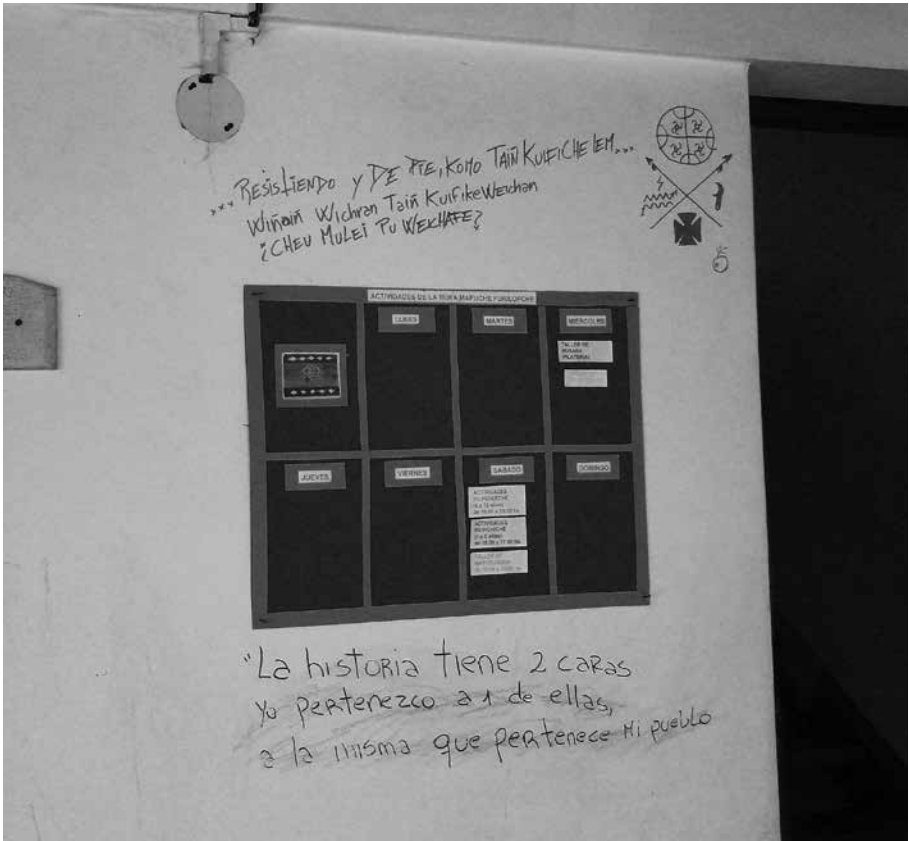 ... RESISTIENDO Y DE PIE, KOMO TAIÑ KUIFICHE LEM...
Wiñaiñ Wichran Taiñ KuifikeWeichan
¿CHEU MULEI PU WEICHAFE?
ACTIVIDADES DE LA RUKA MAPUCHE FURILOFCHE
LUNES
MARTES
MIERCOLES
TALLER DE
JUEVES
VIERNES
SABADO
DOMINGO
ACTIVIDADES
ACTIVIDADES
TALLER DE
"La historia tiene 2 caras
Yo pertenezco a 1 de ellas,
a la misma que pertenece Mi pueblo